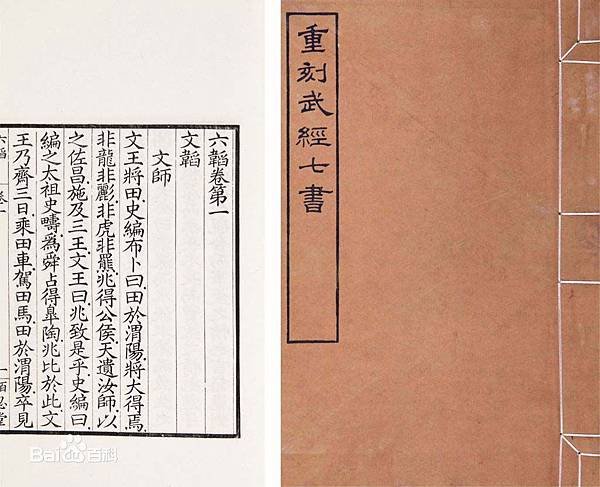 重刻武經七書
六韜卷第一
文韜
文師
文王將田史編布卜曰田於渭陽將大得焉
非龍非彲非虎非羆兆得公侯天遺汝師以
之佐昌施及三王文王曰兆致是乎史編曰
編之太祖史疇爲舜占得皐陶兆比於此文
王乃齊三日乘田車駕田馬田於渭陽卒見
卷一 一
Bai百科